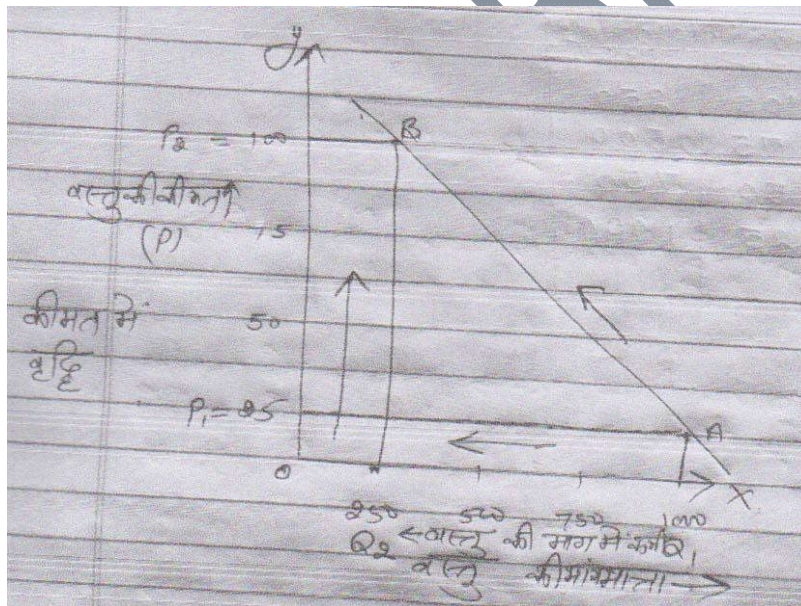 y
P2 = 100
B
वस्तु की कीमत
(P)
75
कीमत में
50
वृद्धि
P1 = 25
A
0
X
250 500 750 1000
Q2 ← वस्तु की मांग में कमी Q1
वस्तु की मांग मात्रा →